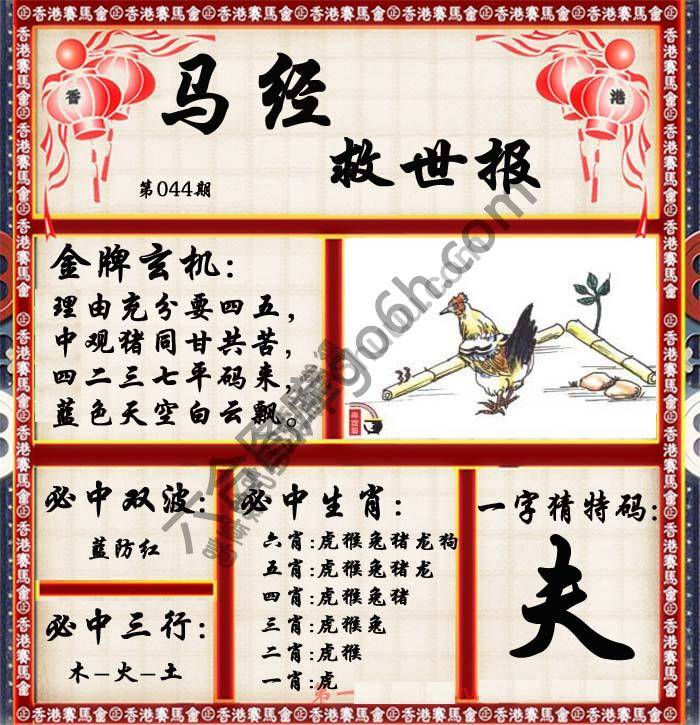 香港賽馬會
香 港
马经
救世报
第044期
金牌玄机:
理由充分要四五,
中观猪同甘共苦,
四二三七平码来,
蓝色天空白云飘。
必中双波:
蓝防红
必中三行:
木-火-土
必中生肖:
六肖:虎猴兔猪龙狗
五肖:虎猴兔猪龙
四肖:虎猴兔猪
三肖:虎猴兔
二肖:虎猴
一肖:虎
一字猜特码:
夫
第一